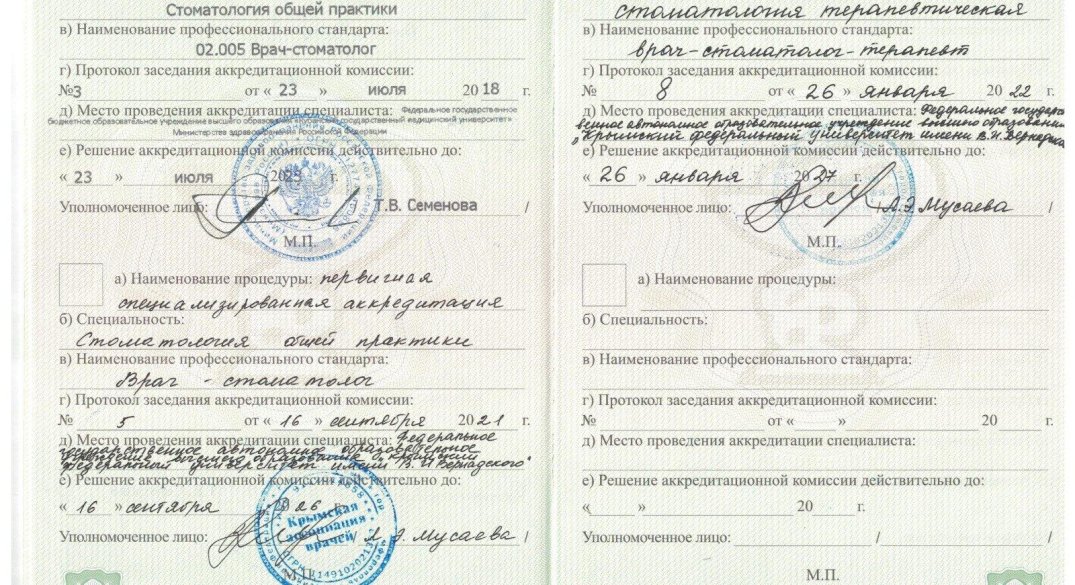 Стоматология общей практики
в) Наименование профессионального стандарта:
02.005 Врач-стоматолог
г) Протокол заседания аккредитационной комиссии:
№3 от « 23 » июля 20 18 г.
д) Место проведения аккредитации специалиста: Федеральное государственное
бюджетное образовательное учреждение высшего образования государственный медицинский университет»
Министерства здравоохранения Российской Федерации
е) Решение аккредитационной комиссии действительно до:
« 23 » июля 2023 г.
Уполномоченное лицо: Т.В. Семенова /
М.П.
а) Наименование процедуры: первичная
специализированная аккредитация
б) Специальность:
Стоматология общей практики
в) Наименование профессионального стандарта:
Врач - стоматолог
г) Протокол заседания аккредитационной комиссии:
№ 5 от « 16 » сентября 2021 г.
д) Место проведения аккредитации специалиста: Федеральное
государственное автономное образовательное
учреждение высшего образования „Крымский
федеральный университет имени В.И Вернадского"
е) Решение аккредитационной комиссии действительно до:
« 16 » сентября 2026 г.
Уполномоченное лицо: Л.Э Мусаева /
Крымская
ассоциация
врачей
М.П.
стоматология терапевтическая
в) Наименование профессионального стандарта:
врач-стоматолог-терапевт
г) Протокол заседания аккредитационной комиссии:
№ 8 от « 26 » января 20 22 г.
д) Место проведения аккредитации специалиста: Федеральное государст-
венное автономное образовательное учреждение высшего образования
„Крымский федеральный университет имени В.И. Вернадского
е) Решение аккредитационной комиссии действительно до:
« 26 » января 2027 г.
Уполномоченное лицо: / Л.Э.Мусаева /
М.П.
а) Наименование процедуры:
б) Специальность:
в) Наименование профессионального стандарта:
г) Протокол заседания аккредитационной комиссии:
№ от « » 20 г.
д) Место проведения аккредитации специалиста:
е) Решение аккредитационной комиссии действительно до:
« » 20 г.
Уполномоченное лицо: / /
М.П.